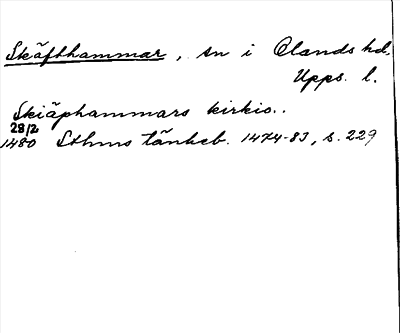 Skäfthammar, sn i Olands hd,
Upps. l.
Skiäphammars kirkio..
28/2
1480 Sthms tänkeb. 1474-83, s. 229